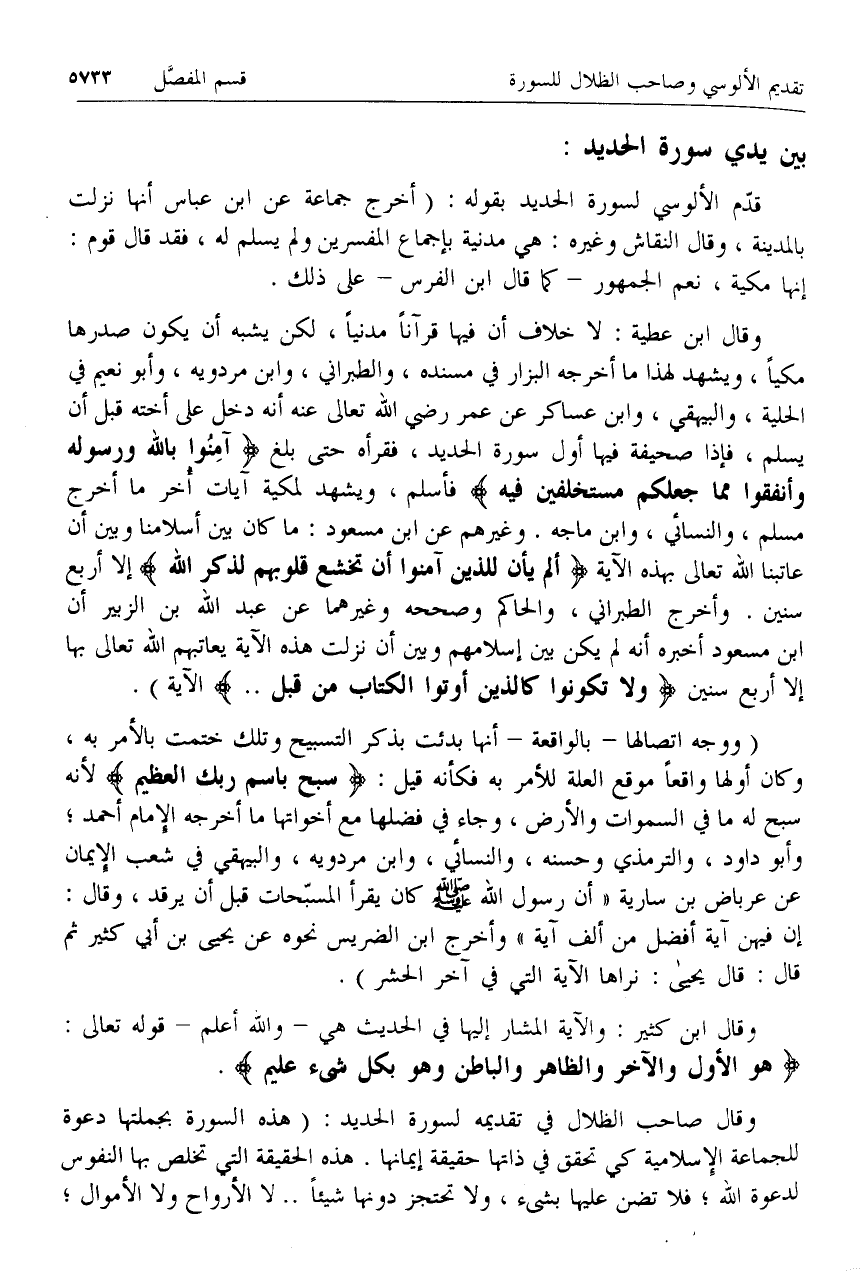 تقديم الألوسي وصاحب الظلال للسورة قسم المفصَّل ٥٧٣٣
بين يدي سورة الحديد :
قدّم الألوسي لسورة الحديد بقوله : ( أخرج جماعة عن ابن عباس أنها نزلت
بالمدينة ، وقال النقاش وغيره : هي مدنية بإجماع المفسرين ولم يسلم له ، فقد قال قوم :
إنها مكية ، نعم الجمهور – كما قال ابن الفرس – على ذلك .
وقال ابن عطية : لا خلاف أن فيها قرآناً مدنياً ، لكن يشبه أن يكون صدرها
مكياً ، ويشهد لهذا ما أخرجه البزار في مسنده ، والطبراني ، وابن مردويه ، وأبو نعيم في
الحلية ، والبيهقي ، وابن عساكر عن عمر رضي الله تعالى عنه أنه دخل على أخته قبل أن
يسلم ، فإذا صحيفة فيها أول سورة الحديد ، فقرأه حتى بلغ ﴿ آمِنُوا بالله ورسوله
وأنفقوا مما جعلكم مستخلفين فيه ﴾ فأسلم ، ويشهد لمكية آيات أُخر ما أخرج
مسلم ، والنسائي ، وابن ماجه . وغيرهم عن ابن مسعود : ما كان بين أسلامنا وبين أن
عاتبنا الله تعالى بهذه الآية ﴿ ألم يأن للذين آمنوا أن تخشع قلوبهم لذكر الله ﴾ إلا أربع
سنين . وأخرج الطبراني ، والحاكم وصححه وغيرهما عن عبد الله بن الزبير أن
ابن مسعود أخبره أنه لم يكن بين إسلامهم وبين أن نزلت هذه الآية يعاتبهم الله تعالى بها
إلا أربع سنين ﴿ ولا تكونوا كالذين أوتوا الكتاب من قبل .. ﴾ الآية ) .
( ووجه اتصالها – بالواقعة – أنها بدئت بذكر التسبيح وتلك ختمت بالأمر به ،
وكان أولها واقعاً موقع العلة للأمر به فكأنه قيل : ﴿ سبح باسم ربك العظيم ﴾ لأنه
سبح له ما في السموات والأرض ، وجاء في فضلها مع أخواتها ما أخرجه الإمام أحمد ؛
وأبو داود ، والترمذي وحسنه ، والنسائي ، وابن مردويه ، والبيهقي في شعب الإيمان
عن عرباض بن سارية « أن رسول الله ﷺ كان يقرأ المسبّحات قبل أن يرقد ، وقال :
إن فيهن آية أفضل من ألف آية » وأخرج ابن الضريس نحوه عن يحيى بن أبي كثير ثم
قال : قال يحيىٰ : نراها الآية التي في آخر الحشر ) .
وقال ابن كثير : والآية المشار إليها في الحديث هي – والله أعلم – قوله تعالى :
﴿ هو الأول والآخر والظاهر والباطن وهو بكل شيء عليم ﴾ .
وقال صاحب الظلال في تقديمه لسورة الحديد : ( هذه السورة بجملتها دعوة
للجماعة الإسلامية كي تحقق في ذاتها حقيقة إيمانها . هذه الحقيقة التي تخلص بها النفوس
لدعوة الله ؛ فلا تضن عليها بشيء ، ولا تحتجز دونها شيئاً .. لا الأرواح ولا الأموال ؛